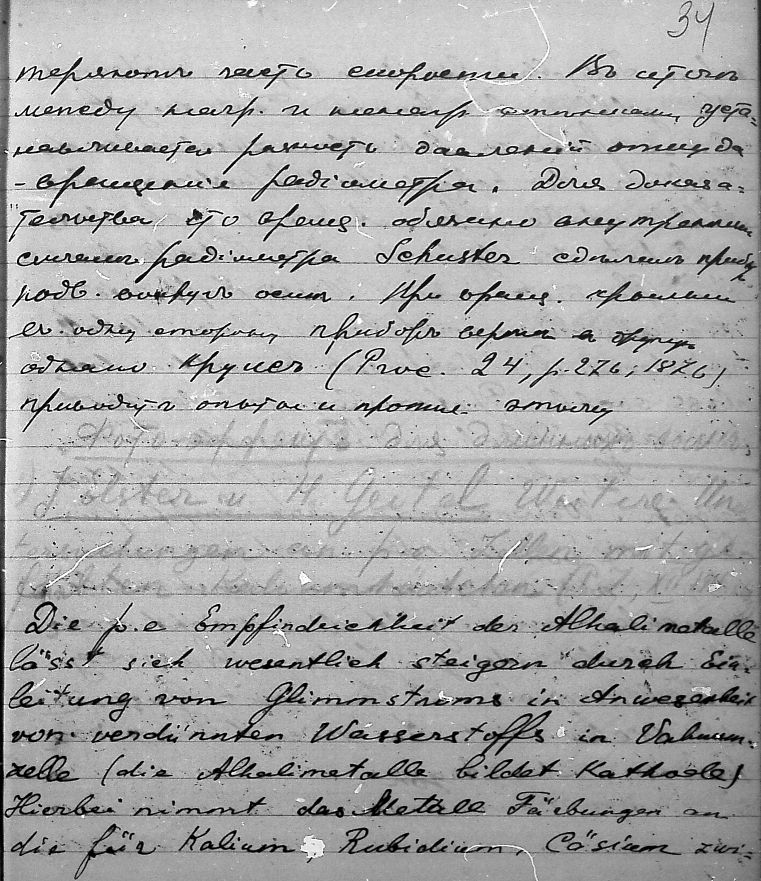 34
теряютъ часть скорости. Въ итогѣ
между нагр. и устa=
навливается разность давленій откуда
- вращеніе радіометра. Для доказа=
тельства, что вращ. обязано внутреннимъ
силамъ радіометра Schuster сдѣлалъ приборъ
подв. вокругъ оси. При вращ. крыльевъ
въ одну сторону приборъ вертится въ другую
однако Круксъ (Proc. 24, p. 276; 1876)
приводитъ опыты и противъ этому
Фотоэффектъ для длинныхъ волнъ.
J Elster u H Geitel Weitere Un
tersuchungen an p.e Zellen mit ge
färbten Kalium
Die p.e Empfindlichkeit der Alkalimetalle
lässt sich wesentlich steigern durch Ein-
leitung von Glimmstroms in Anwesenheit
von verdünnten Wasserstoffs in Vakuum-
zelle (die Alkalimetalle bildet Kathode)
Hierbei nimmt das Metall Färbungen an
die für Kalium, Rubidium, Cäsium zwi-